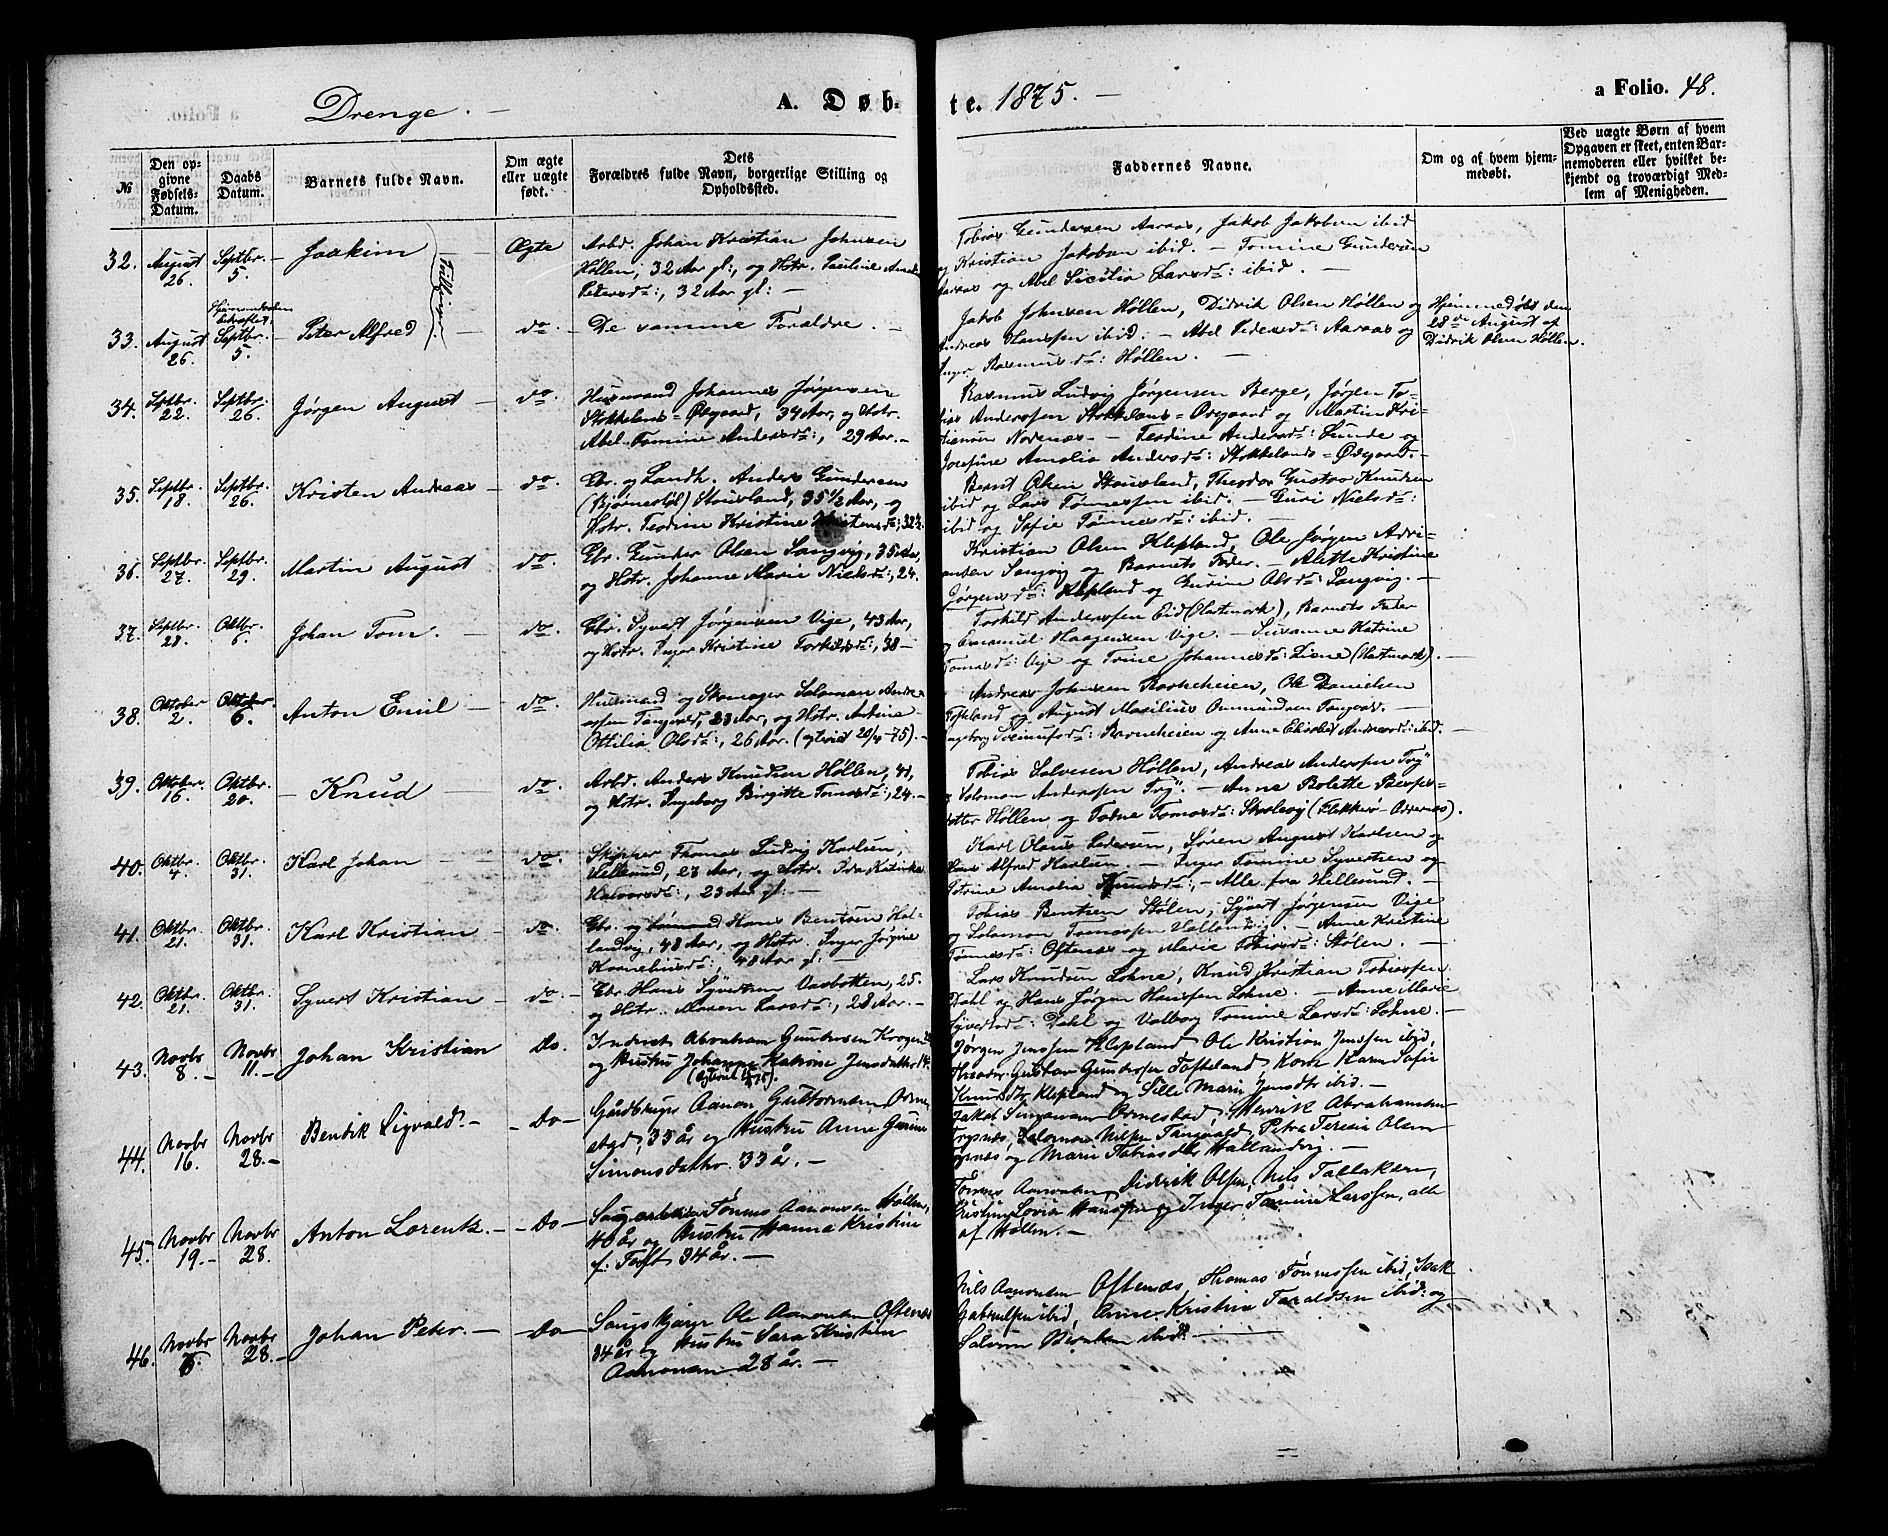 Drenge. — A. Døb- te. 1875. — a Folio. 48.
№ Den opgivne Fødsels-Datum. Daabs Datum. Barnets fulde Navn. Om ægte eller uægte født. Dets Forældres fulde Navn, borgerlige Stilling og Opholdssted. Faddernes Navne. Om og af hvem hjemmedøbt. Ved uægte Børn af hvem Opgaven er skeet, enten Barnemoderen eller hvilket bekjendt og troværdigt Medlem af Menigheden.
32. August 26. Septbr. 5. Joakim Ægte
Arbd. Johan Kristian Johnsen
Høllen, 32 Aar gl:, og Hstr. Pauline
Petersd:, 32 Aar gl: —
Tobias Gundersen Aaraas, Jakob Jakobsen ibid
og Kristian Jakobsen ibid. — Tomine Gundersen
Aaraas og Abel Sicilia Larsd: ibid. —
Tvillinger
33. August 26. Hjemmedaaben bekræftet: Septbr. 5. Peter Alfred do.
De samme Forældre. —
Jakob Johnsen Høllen, Didrik Olsen Høllen og
Andreas Hanssen ibid. — Abel Pedersd: Aaraas og
Inger Rasmusd: Høllen. —
Hjemmedøbt den
28de August af
Didrik Olsen Høllen.
34. Septbr. 22. Septbr. 26. Jørgen August do.
Husmand Johannes Jørgensen
Stokkelands-Ødegaard, 34 Aar, og Hstr.
Abel Tomine Andersd:, 29 Aar. —
Rasmus Ludvig Jørgensen Berge, Jørgen To-
bias Anderssen Stokkelands-Ødegaard og Martin Kri-
stiansen Nodenæs. — Teodine Andersd: Lunde og
Josefine Amalia Andersd: Stokkelands-Ødegaard. —
35. Septbr. 18. Septbr. 26. Kristen Andreas do.
Gbr. og Landh. Anders Gundersen
(Bjørnestøl) Stausland, 35 1/2 Aar, og
Hstr. Teodine Kristine Kristensd:, 32 1/2.
Bernt Olsen Stausland, Theodor Gustav Knudsen
ibid og Lars Tønnessen ibid. — Guri Nielsd:
ibid og Sofie Tønnesd: ibid. —
36. Septbr. 27. Septbr. 29. Martin August do.
Gbr. Gunder Olsen Langvig, 35 Aar,
og Hstr. Johanne Marie Nielsd:, 24.
Kristian Olsen Klepland, Ole Jørgen Adri-
ansen Langvig og Barnets Fader. — Alette Kristine
Jørgensd: Klepland og Gurine Olsd: Langvig. —
37. Septbr. 28. Oktbr. 6. Johan Tom. do.
Gbr. Syvert Jørgensen Vige, 43 Aar,
og Hstr. Inger Kristine Torkildsd:, 38 —
Torkild Anderssen Eid (Hartmark), Barnets Fader
og Emanuel Haagensen Vige. — Susanne Katrine
Tomasd: Vige og Trine Johannesd: Liene (Hartmark). —
38. Oktober 2. Oktober 6. Anton Emil do.
Husmand og Skomager Salomon Andre-
assen Tangvald, 23 Aar, og Hstr. Andrine
Ottilia Olsd:, 26 Aar. (gtviet 20/4 -75). —
Andreas Johnsen Rosheheien, Ole Danielsen
Tofteland og August Masilius Ommundsen Tangvald. —
Ingeborg Sveinusd: Rosneheien og Anne Elisabet Andreasd: ibid. —
39. Oktober 16. Oktbr. 20. Knud do.
Arbd. Anders Knudsen Høllen, 41,
og Hstr. Ingeborg Birgitte Tomasd:, 24. —
Tobias Salvesen Høllen, Andreas Anderssen Try
og Salomon Anderssen Try. — Anne Bolette
datter Høllen og Tobine Tomasd: Skaalevig (Flekkerø - Oddernæs).
40. Oktbr. 4. Oktbr. 31. Karl Johan do.
Skipper Thomas Ludvig Karlsen,
Hellesund, 27 Aar, og Hstr. Ida Katinka
Halvorsd:, 23 Aar gl: —
Karl Olaus Pedersen, Søren August Karlsen og
Hans Alfred Karlsen. — Inger Tomine Syvertsen og
Petrine Amalia Knudsd:, — Alle fra Hellesund. —
41. Oktbr. 21. Oktbr. 31. Karl Kristian do.
Gbr. og Sømand Hans Bentsen Hal-
landvig, 48 Aar, og Hstr. Inger Jørgine
Korneliusd:, 48 Aar gl: —
Tobias Bentsen Stølen, Syvert Jørgensen Vige
og Salomon Tomassen Hallandvig. — Anne Kristine
Tønnesd: Oftenæs og Marie Tobiasd: Stølen. —
42. Oktbr. 21. Oktbr. 31. Syvert Kristian do.
Gbr. Hans Syvertsen Vasbotten, 25.
og Hstr. Maren Larsd:, 28 Aar. —
Lars Knudsen Lohne, Knud Kristian Tobiassen
Dahl og Hans Jørgen Hanssen Lohne. — Anne Marie
Syvertsd: Dahl og Valborg Tomine Larsd: Lohne. —
43. Novbr 8. — Novbr 11. — Johan Kristian Do.
Inderst Abraham Gundersen Krogen
og Hustru Johanne Katrine Jensdatter
Jørgen Jenssen Klepland Ole Kristian Jenssen ibid,
Theodor Gustav Gundersen Tofteland, Kone Karen Sofie
Knudsdtr Klepland og Sille Marie Jensdtr ibid. —
44. Novbr 16. Novbr 28. — Bentik Sigvald. — Do —
Gårdbruger Aanon Guttormsen Orme-
stad, 35 år og Hustru Anne Gurine
Simonsdatter 33 år. —
Jakob Simonsen Ormestad, Henrik Abrahamsen
Trysnes, Salomon Nilsen Tangvald, Petra Teresia Olsen
Trysnes og Marie Tobiasdtr Hallandvig. —
45. Novbr 19. — Novbr 28. Anton Lorentz. — Do —
Saugarbeider Tønnes Aanonsen Høllen,
40 år og Hustru Hanna Kristine
f: Toft 34 år. —
Tønnes Aanonsen, Didrik Olsen, Nils Tallaksen,
Kristine Lovise Hanssen og Inger Tomine Larssen, alle
af Høllen. —
46. Novbr Novbr 28. Johan Peter. — Do —
Ole Aanonsen Oftenæs
34 år og Hustru Sara Kristine
Aanonsen 28 år. —
Nils Aanonsen Oftenæs, Thomas Tønnessen ibid, Isak
Gabrielsen ibid, Anne Kristine Taraldsen ibid: og
ibid. —